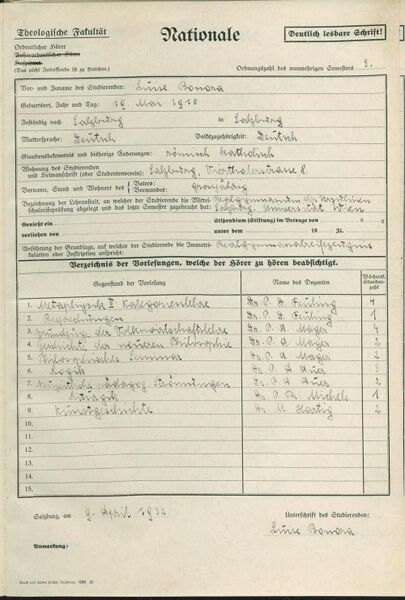 Theologische Fakultät
Nationale
Deutlich lesbare Schrift!
Ordentlicher Hörer
Außerordentlicher Hörer
Hospitant
(Das nicht Zutreffende ist zu streichen.)
Ordnungszahl des nunmehrigen Semesters 3.
Vor- und Zuname des Studierenden: Luise Bonora
Geburtsort, Jahr und Tag: 19. Mai 1910
Zuständig nach Salzburg in Salzburg
Muttersprache: Deutsch Volkszugehörigkeit: Deutsch
Glaubensbekenntnis und bisherige Änderungen: römisch katholisch
Wohnung des Studierenden
und Heimanschrift (oder Studentenverein): Salzburg, Vierthalerstrasse 8.
Vorname, Stand und Wohnort des Vaters: Vormundes: grossjährig
Bezeichnung der Lehranstalt, an welcher der Studierende die Mittel- Realgymnasium der Ursulinen
schulreifeprüfung abgelegt und das letzte Semester zugebracht hat: Salzburg. Universität Wien
Genießt ein Stipendium (Stiftung) im Betrage von
verliehen von unter dem 19 31.
Anführung der Grundlage, auf welcher der Studierende die Immatri-
kulation oder Inskription anspricht: Realgymnasialreifezeugnis
Verzeichnis der Vorlesungen, welche der Hörer zu hören beabsichtigt.
Gegenstand der Vorlesung Name des Dozenten Wöchentl. Stunden- zahl
1. Metaphysik II Kategorienlehre Dr. P. D. Feuling 4
2. Dr. P. D. Feuling 1
3. Grundzüge der Volkswirtschaftslehre Dr. P. A. Mager 4
4. Geschichte der neueren Philosophie Dr. P. A. Mager 2
5. Philosophisches Seminar Dr. P. A. Mager 2
6. Logik Dr. P. A. Auer 3
7. pädagog. Strömungen Dr. P. A. Auer 2
8. Dr. P. Th. Michels 1
9. Kunstgeschichte Dr. M. Hartig 2
10.
11.
12.
13.
14.
15.
Salzburg, am 9. April 1932
Unterschrift des Studierenden:
Luise Bonora
Anmerkung: